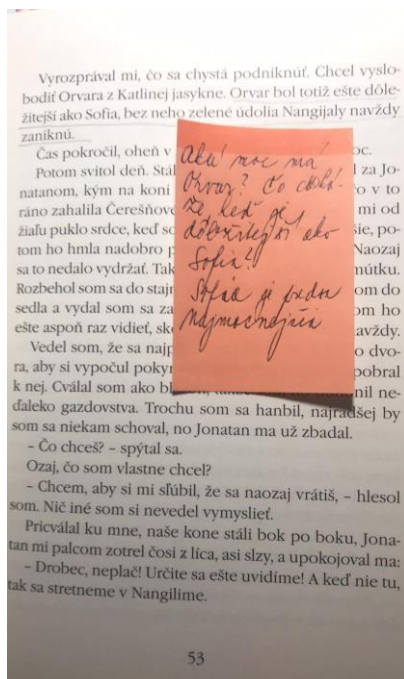 Vyrozprával mi, čo sa chystá podniknúť. Chcel vyslo-
bodiť Orvara z Katlinej jasykne. Orvar bol totiž ešte dôle-
žitejší ako Sofia, bez neho zelené údolia Nangijaly navždy
zaniknú.
Čas pokročil, oheň v
Potom svitol deň. Stál za Jo-
natanom, kým na koni
ráno zahalila Čerešňov mi od
žiaľu puklo srdce, keď
tom ho hmla nadobro Naozaj
sa to nedalo vydržať. Tak
Rozbehol som sa do staj om do
sedla a vydal som sa za om ho
ešte aspoň raz vidieť,
Vedel som, že sa najp o dvo-
ra, aby si vypočul poky pobral
k nej. Cválal som ako nil ne-
ďaleko gazdovstva. Trochu som sa hanbil, najradšej by
som sa niekam schoval, no Jonatan ma už zbadal.
– Čo chceš? – spýtal sa.
Ozaj, čo som vlastne chcel?
– Chcem, aby si mi sľúbil, že sa naozaj vrátiš, – hlesol
som. Nič iné som si nevedel vymyslieť.
Pricválal ku mne, naše kone stáli bok po boku, Jona-
tan mi palcom zotrel čosi z líca, asi slzy, a upokojoval ma:
– Drobec, neplač! Určite sa ešte uvidíme! A keď nie tu,
tak sa stretneme v Nangilime.
53
Akú moc má
Orvar? Čo
že keď je
dôležitejší ako
Sofia?
Sofia je predsa
najmocnejšia